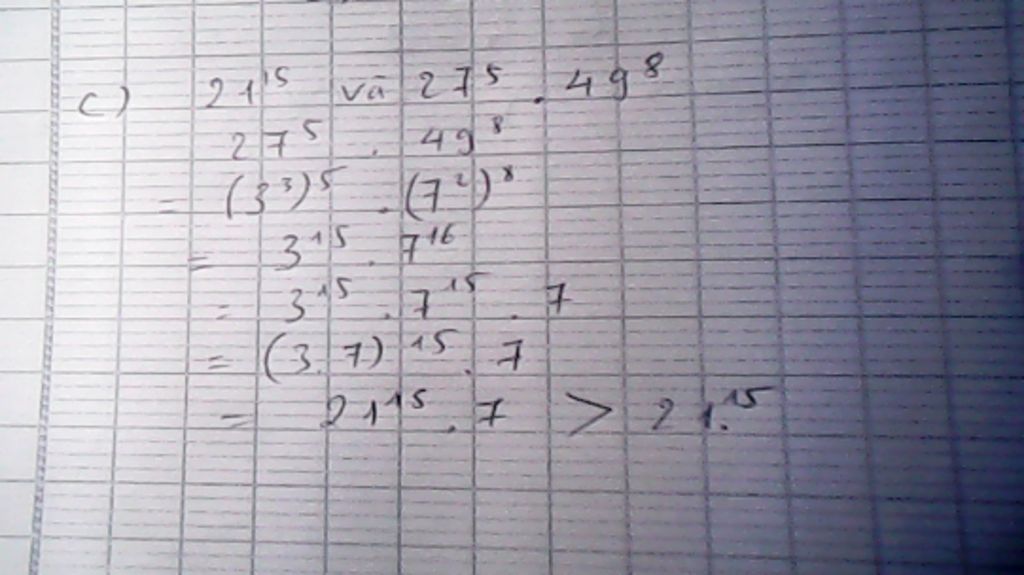 c) 21¹⁵ và 27⁵ . 49⁸
27⁵ . 49⁸
= (3³)⁵ . (7²)⁸
= 3¹⁵ . 7¹⁶
= 3¹⁵ . 7¹⁵ . 7
= (3.7)¹⁵ . 7
= 21¹⁵ . 7 > 21.¹⁵